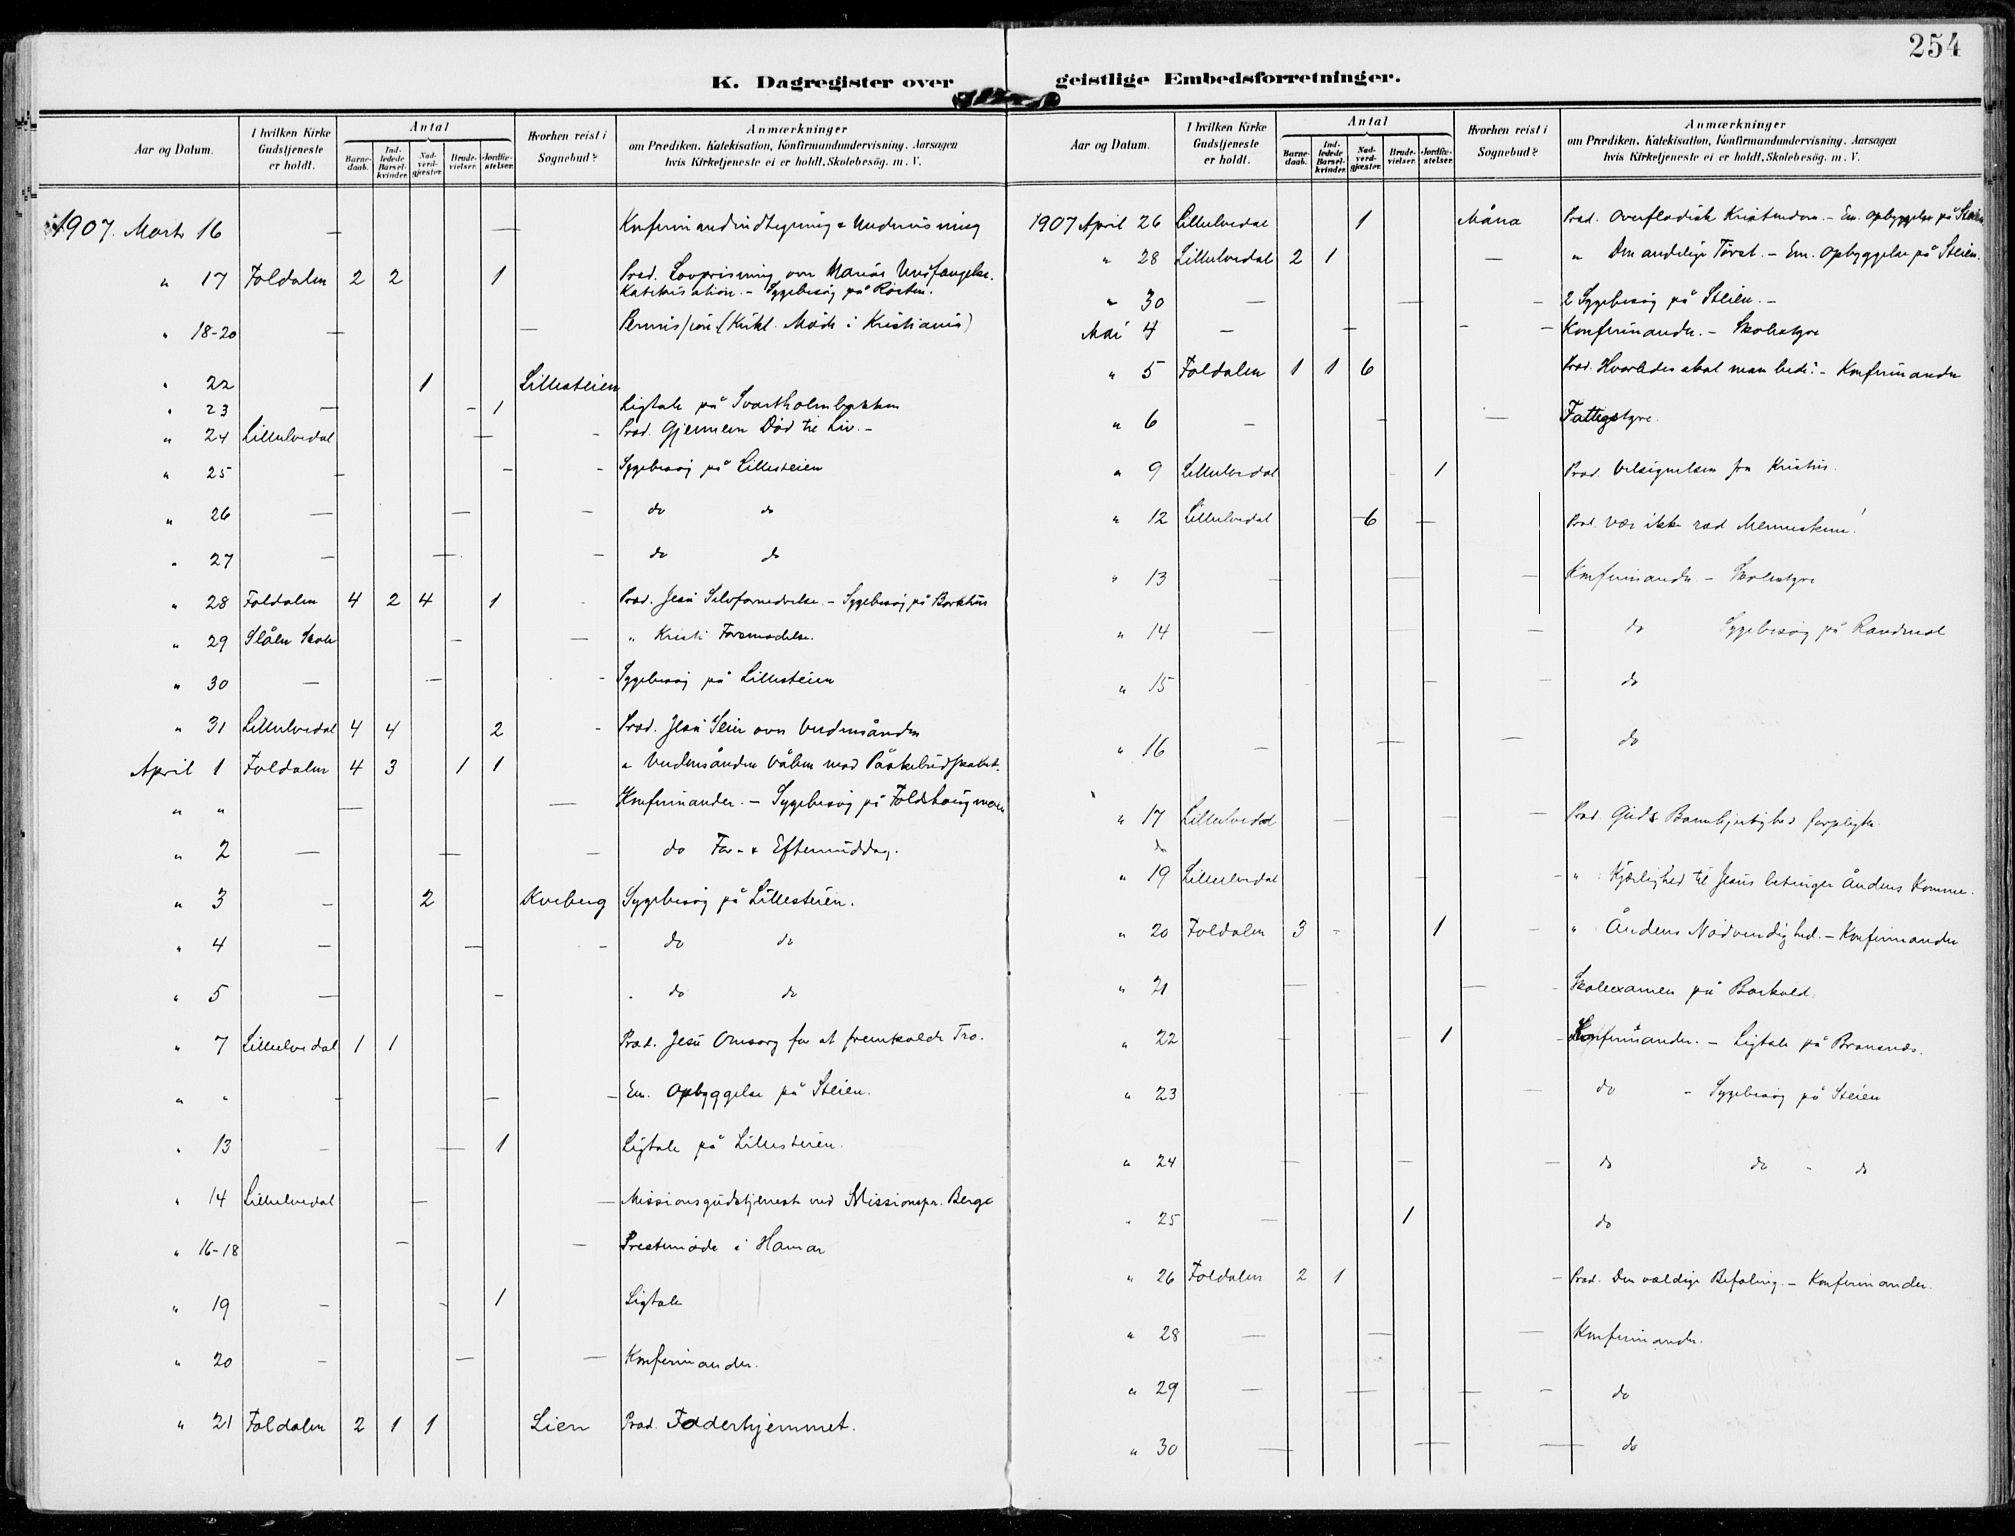 254
K. Dagregister over geistlige Embedsforretninger.
Aar og Datum. I hvilken Kirke Gudstjeneste er holdt. Antal Barnedaab. Indledede Barselkvinder. Nadverdgjæster. Brudevielser. Jordfæstelser. Hvorhen reist i Sognebud? Anmærkninger om Prædiken, Katekisation, Konfirmandundervisning, Aarsagen hvis Kirketjeneste ei er holdt, Skolebesøg, m. V.
1907. Marts 16 — — Konfirmandindtegning & Undervisning
" 17 Foldalen 2 2 1 Præd. Lovprisning over Marias Undfangelse.
Katekisation. - Sygebesøg på Rosten.
" 18-20 — — Permission (Kirkl. Møde i Kristiania)
" 22 1 Lillesteien
" 23 — - 1 Ligtale på Svartholmbakken
" 24 Lilleelvedal — - Præd. Gjennem Død til Liv. -
" 25 - - - Sygebesøg på Lillesteien
" 26 — — - do do
" 27 - — - do do
" 28 Foldalen 4 2 4 1 - Præd. Jesu Selvfornedrelse. - Sygebesøg på Borkhus
" 29 Slåen Skole - — " Kristi
" 30 — - - Sygebesøg på Lillesteien
" 31 Lilleelvedal 4 4 2 - Præd. Jesu Seier over Verdensånden
April 1 Foldalen 4 3 1 1 " Verdensånden Våben mod Påskebudskabet.
" " — — Konfirmander. - Sygebesøg på Foldshaugmoen
" 2 — — - do For- & Eftermiddag.
" 3 - 2 Kveberg Sygebesøg på Lillesteien.
" 4 - — - do do
" 5 — - do do
" 7 Lilleelvedal 1 1 Præd. Jesu Omsorg for at fremkalde Tro.
" " - - - Em. Opbyggelse på Steien.
" 13 - — 1 Ligtale på Lillesteien.
" 14 Lilleelvedal — — Missionsgudstjeneste ved Missionspr. Berge
" 16-18 - - Prestemøde i Hamar
" 19 - - 1 Ligtale
" 20 - — — Konfirmander.
" 21 Foldalen 2 1 1 Lien Præd. Faderhjemmet.
Aar og Datum. I hvilken Kirke Gudstjeneste er holdt. Antal Barnedaab. Indledede Barselkvinder. Nadverdgjæster. Brudevielser. Jordfæstelser. Hvorhen reist i Sognebud? Anmærkninger om Prædiken, Katekisation, Konfirmandundervisning, Aarsagen hvis Kirketjeneste ei er holdt, Skolebesøg, m. V.
1907 April 26 Lilleelvedal 1 Måna Præd. Overflødisk Kristendom. - Em. Opbyggelse på Steien
" 28 Lilleelvedal 2 1 — " Den åndelige Tørst. - Em. Opbyggelse på Steien.
" 30 — — - 2 Sygebesøg på Steien. -
Mai 4 - - - - Konfirmander. - Skolestyre
" 5 Foldalen 1 1 6 Præd. Hvorledes skal man bede? - Konfirmander
" 6 - - — Fattigstyre.
" 9 Lilleelvedal - 1 Præd. Velsignelsen fra Kristus.
" 12 Lilleelvedal 6 — Præd. Vær ikke ræd Menneskene!
" 13 - — - Konfirmander - Skolestyre
" 14 — — - do Sygebesøg på Randmæl
" 15 - - - do
" 16 - — — do
" 17 Lilleelvedal - — - Præd. Guds Barmhjertighed forpligter.
do
" 19 Lilleelvedal - - " Kjærlighed til Jesus betinger Åndens Komme.
" 20 Foldalen 3 - 1 - " Åndens Nødvendighed. - Konfirmander
" 21 — - — - Skoleexamen på Borkold.
" 22 1 - Konfirmander. - Ligtale på Bransnæs.
" 23 - - - do - Sygebesøg på Steien
" 24 - - - do do " do
" 25 - 1 do
" 26 Foldalen 2 1 - Præd. Den vældige Befaling. - Konfirmander.
" 28 — — — Konfirmander.
" 29 — — - - do
" 30 — — — do